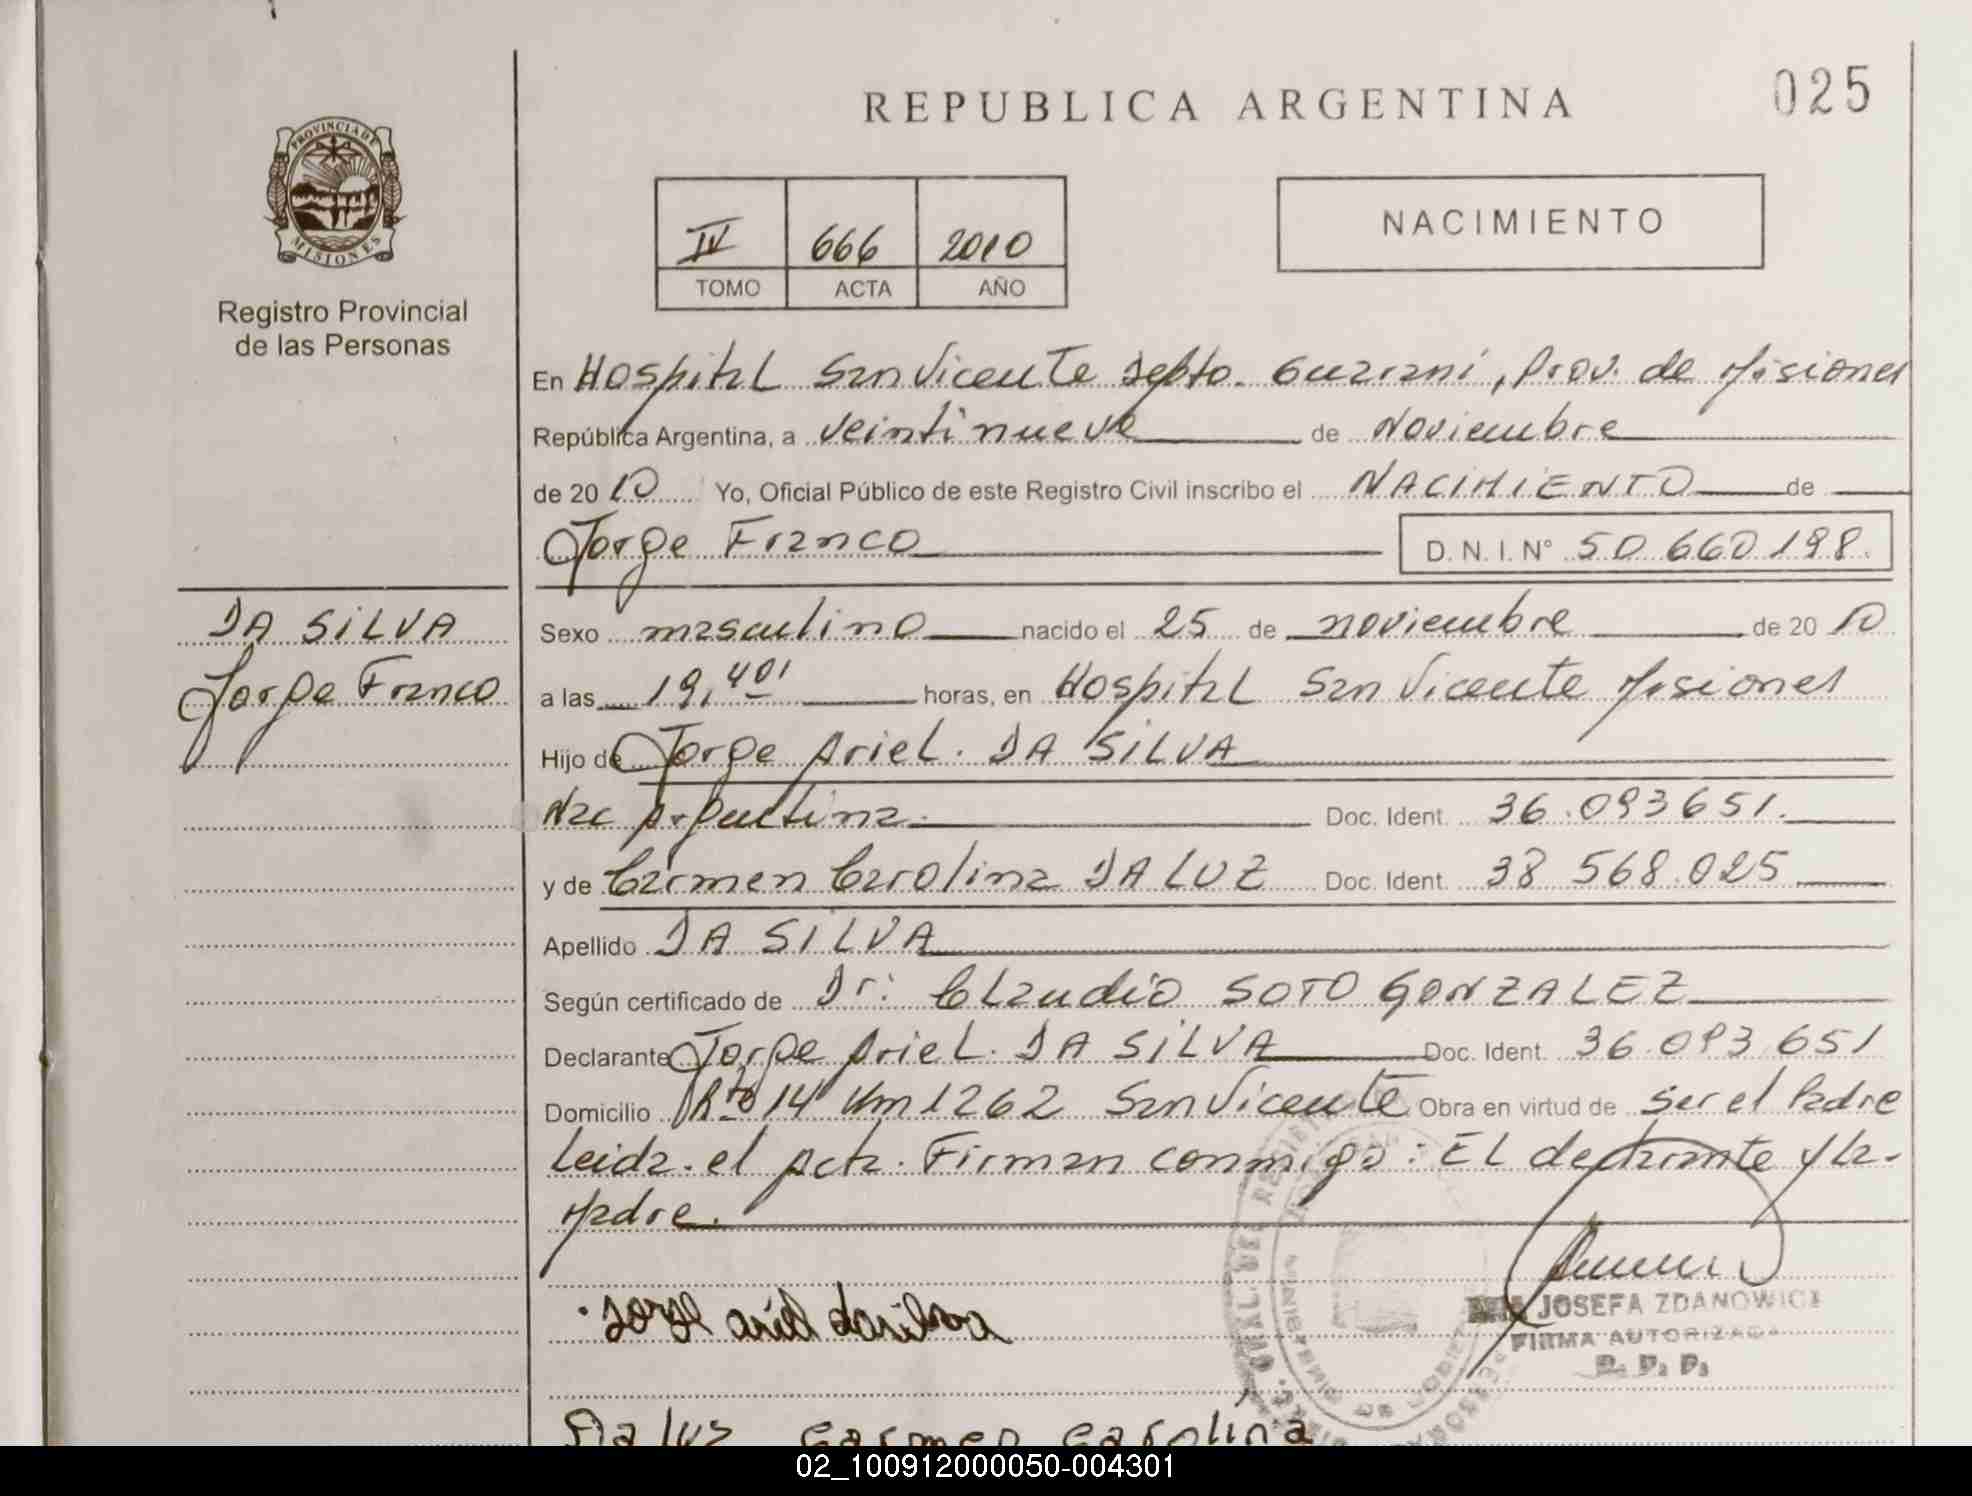 REPUBLICA ARGENTINA
025
PROVINCIA DE
MISIONES
Registro Provincial
de las Personas
IV 666 2010
TOMO ACTA AÑO
NACIMIENTO
En Hospital San Vicente Depto. Guaraní, Prov. de Misiones
República Argentina, a veintinueve de Noviembre
de 20 10 Yo, Oficial Público de este Registro Civil inscribo el NACIMIENTO de
Jorge Franco D.N.I. N° 50 660 198.
DA SILVA
Jorge Franco
Sexo masculino nacido el 25 de noviembre de 20 10
a las 19,40' horas, en Hospital San Vicente Misiones
Hijo de Jorge Ariel. DA SILVA
Nac Argentina. Doc. Ident. 36.093651.
y de Carmen Carolina DA LUZ Doc. Ident. 38 568.025
Apellido DA SILVA
Según certificado de Dr: Claudio SOTO GONZALEZ
Declarante Jorge Ariel. DA SILVA Doc. Ident. 36.093 651
Domicilio Rta 14 Km 1262 San Vicente Obra en virtud de Ser el Padre
Leida. el Acta. Firman conmigo: EL declarante y la-
Madre.
JOSEFA ZDANOWICZ
FIRMA AUTORIZADA
R. P. P.
Jorge ariel dasilva
Da luz Carmen Carolina
02_100912000050-004301